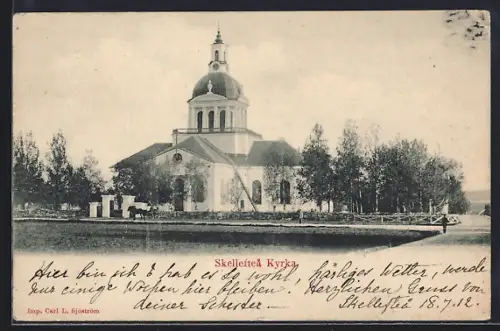 Skellefteå Kyrka.
Hier bin ich & hab es so wohl, härliges Wetter, werde
nur einige Wochen hier bleiben! Herzlichen Gruss von
deiner Schester. Skellefteå 18.7.12.
Imp. Carl L. Sjöström